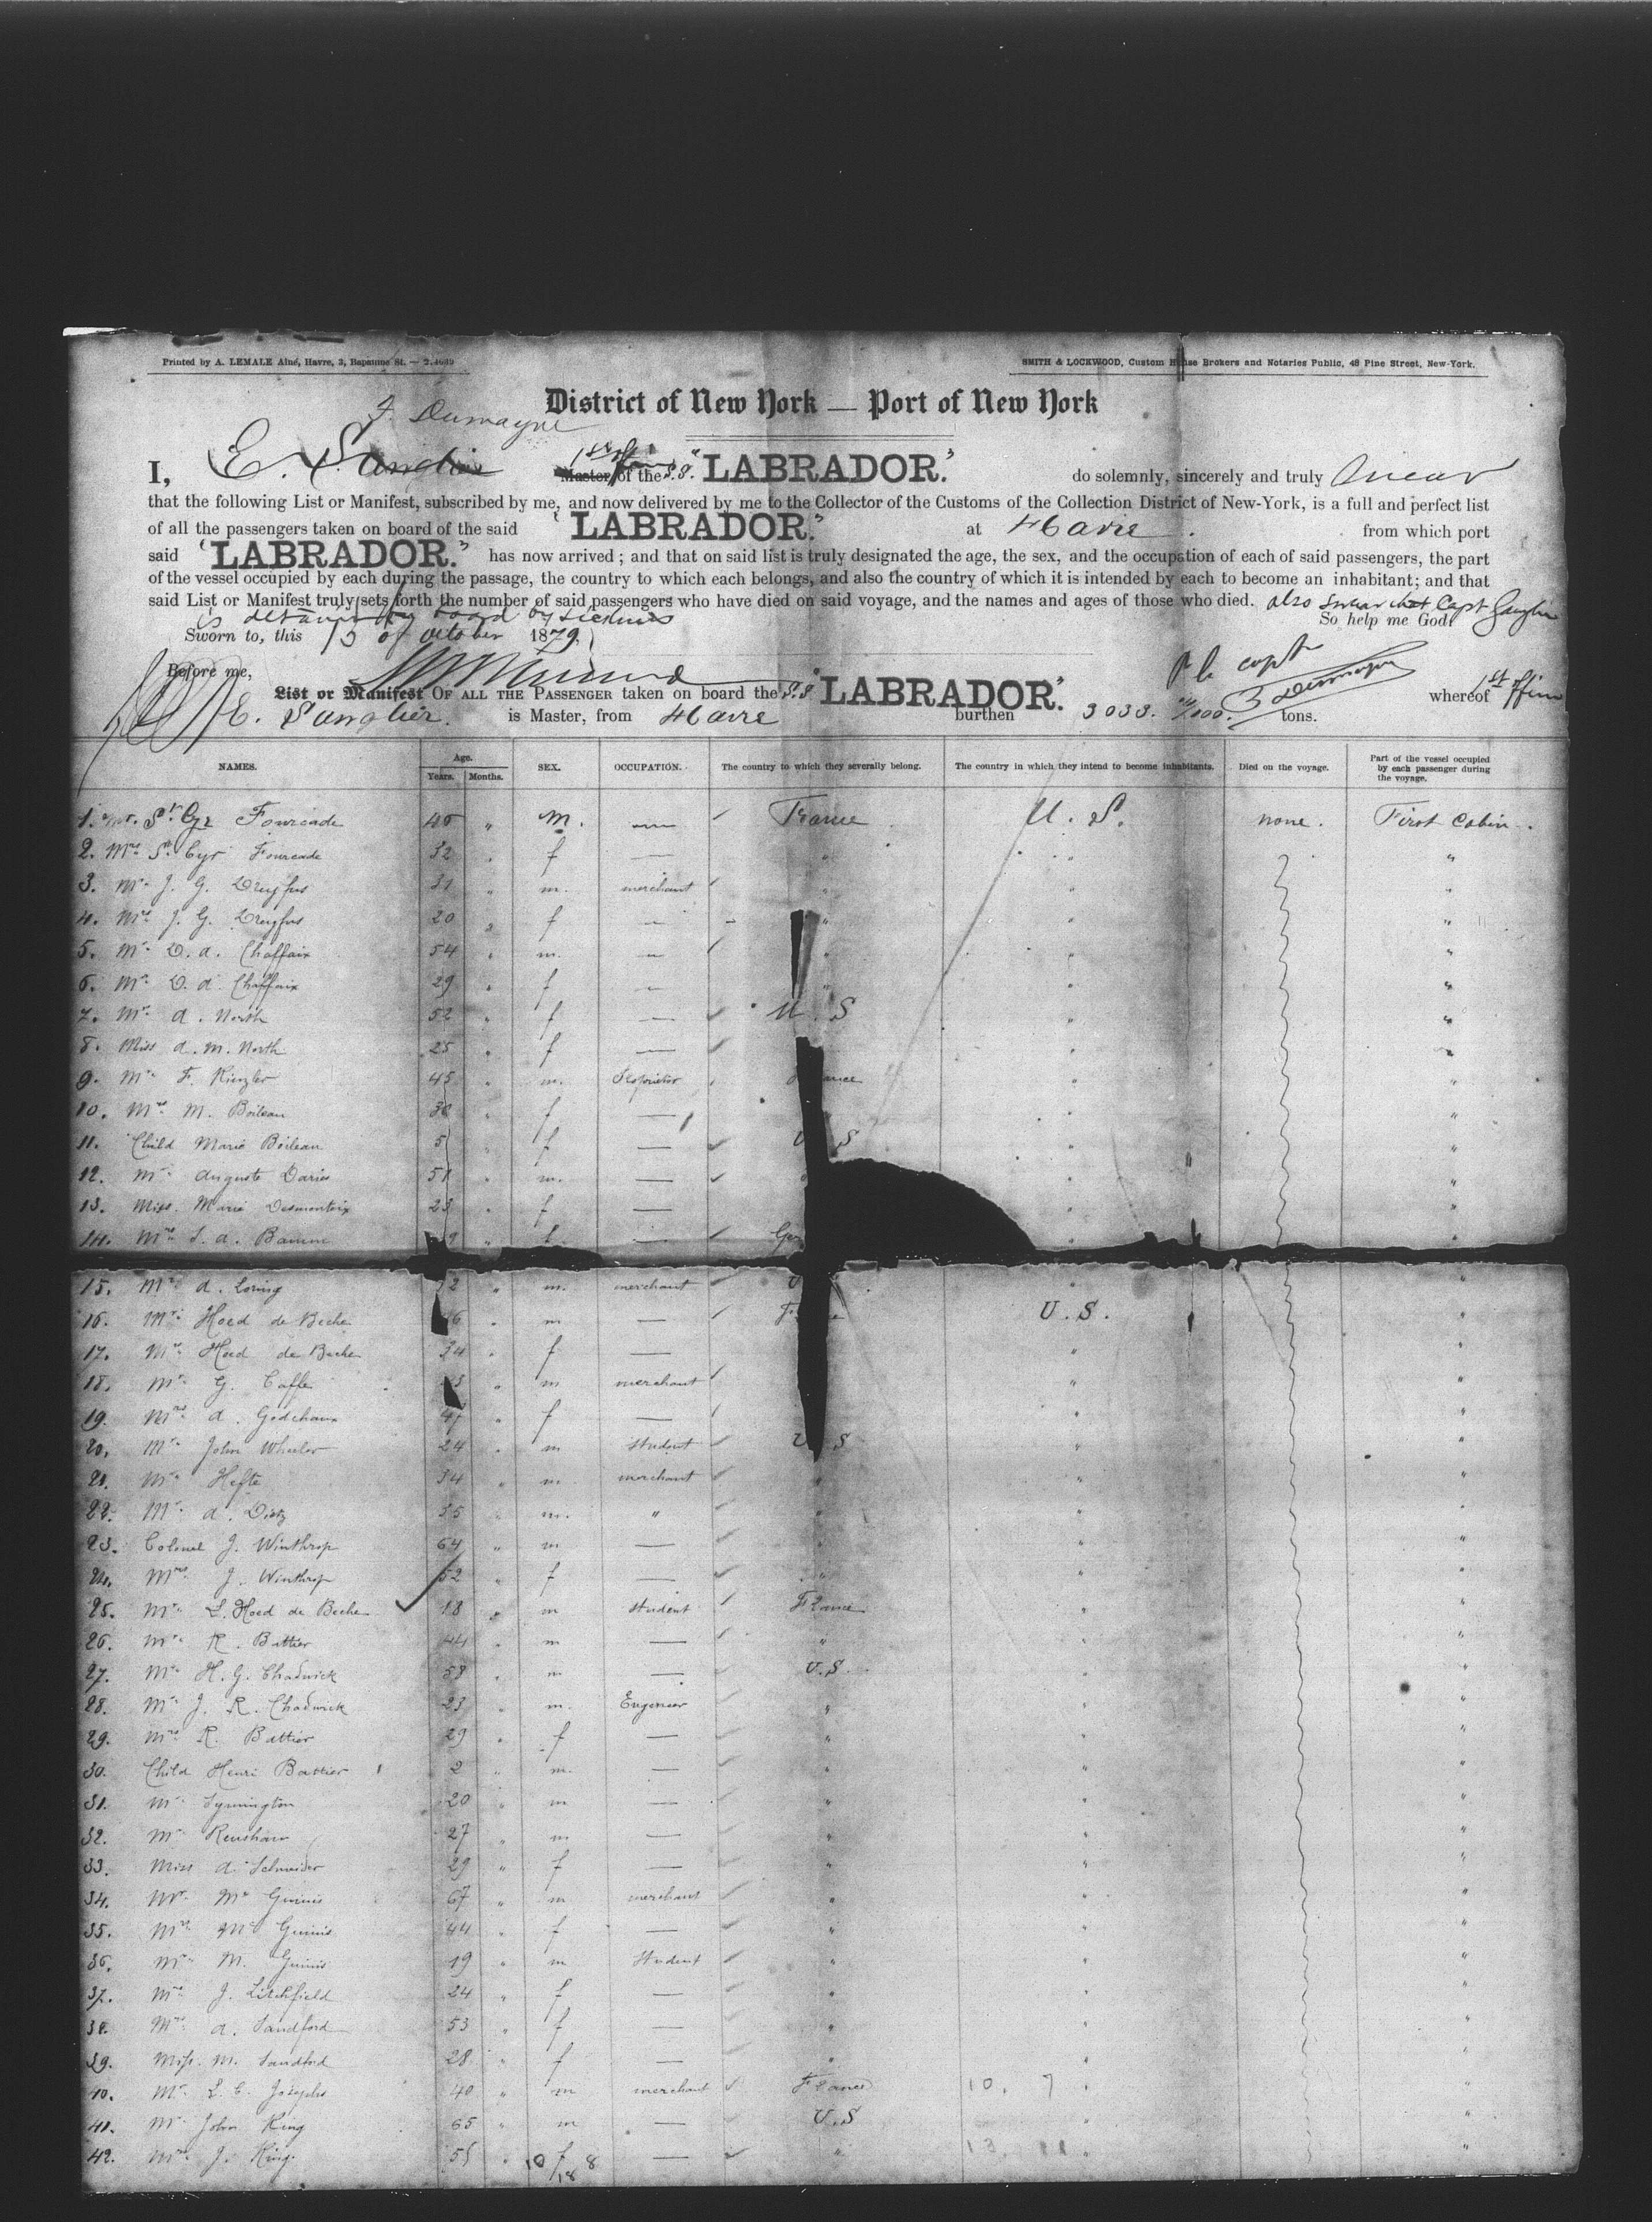 Printed by A. LEMALE Aîné, Havre, 3, Bapaume St. —
SMITH & LOCKWOOD, Custom House Brokers and Notaries Public, 48 Pine Street, New-York.
District of New York — Port of New York
J. Dumayne
I, E. Sanglier 1st Offi Master of the S.S. "LABRADOR." do solemnly, sincerely and truly swear
that the following List or Manifest, subscribed by me, and now delivered by me to the Collector of the Customs of the Collection District of New-York, is a full and perfect list
of all the passengers taken on board of the said "LABRADOR." at Havre. from which port
said "LABRADOR." has now arrived ; and that on said list is truly designated the age, the sex, and the occupation of each of said passengers, the part
of the vessel occupied by each during the passage, the country to which each belongs, and also the country of which it is intended by each to become an inhabitant; and that
said List or Manifest truly sets forth the number of said passengers who have died on said voyage, and the names and ages of those who died. also swear that Capt
is board by sickness So help me God.
Sworn to, this 15 of October 1879.
Before me, pr capt
List or Manifest OF ALL THE PASSENGER taken on board the S.S. "LABRADOR." whereof 1st
E. Sanglier. is Master, from Havre burthen 3033. /100. tons.
NAMES. Age. Years. Months. SEX. OCCUPATION. The country to which they severally belong. The country in which they intend to become inhabitants. Died on the voyage. Part of the vessel occupied by each passenger during the voyage.
1. Mr. St Cyr Fourcade 45 " m. — France U. S. none. First Cabin.
2. Mrs St Cyr Fourcade 32 " f — " " "
3. Mr. J. G. Dreyfus 31 " m. merchant " " "
4. Mrs J. G. Dreyfus 20 " f — " " "
5. Mr. D. A. Chaffaix 54 " m. — " " "
6. Mrs D. A. Chaffaix 29 " f — " " "
7. Mrs A. North 52 " f — U. S " "
8. Miss A. M. North 25 " f — " "
9. Mr. F. Kinzler 45 " m. Proprietor France " "
10. Mrs M. Boileau 30 " f — " "
11. Child Marie Boileau 5 " f — U S " "
12. Mr. Auguste Daries 51 " m. — " "
13. Miss. Marie Desmonteix 23 " f — "
14. Mrs S. A. 9 " f — Ger " "
15. Mr. A. Loring 2 " m. merchant U " "
16. Mr. Hoed de Beche 6 " m — F U. S. "
17. Mrs Hoed de Beche 34 " f — " "
18. Mr. G. Caffe 3 " m merchant " "
19. Mrs A. Godchaux 47 " f — " "
20. Mr. John Wheeler 24 " m student U S " "
21. Mr. Hefte 34 " m merchant " " "
22. Mr. A. Dietz 35 " m. " " " "
23. Colonel J. Winthrop 64 " m — " " "
24. Mrs J. Winthrop 52 " f — " " "
25. Mr. L. Hoed de Beche 18 " m student France " "
26. Mr. R. Battier 44 " m — " " "
27. Mr. H. G. Chadwick 58 " m — U.S. " "
28. Mr. J. R. Chadwick 23 " m. Engeneer " " "
29. Mrs R. Battier 29 " f — " " "
30. Child Henri Battier 2 " m. — " " "
31. Mr. Symington 20 " m — " " "
32. Mr. Renshaw 27 " m — " " "
33. Miss A. Schneider 29 " f — " " "
34. Mr. Mc Ginnis 67 " m merchant " " "
35. Mrs Mc Ginnis 44 " f — " " "
36. Mr. M. Ginnis 19 " m student " " "
37. Mrs J. Litchfield 24 " f — " " "
38. Mrs A. Sandford 53 " f — " " "
39. Miss. M. Sandford 28 " f — " " "
40. Mr. L. C. Josephs 40 " m merchant France 10. 7 " "
41. Mr. John King 65 " m — U.S " "
42. Mrs J. King. 55 " f — " 13. 11 " "
10 18 8